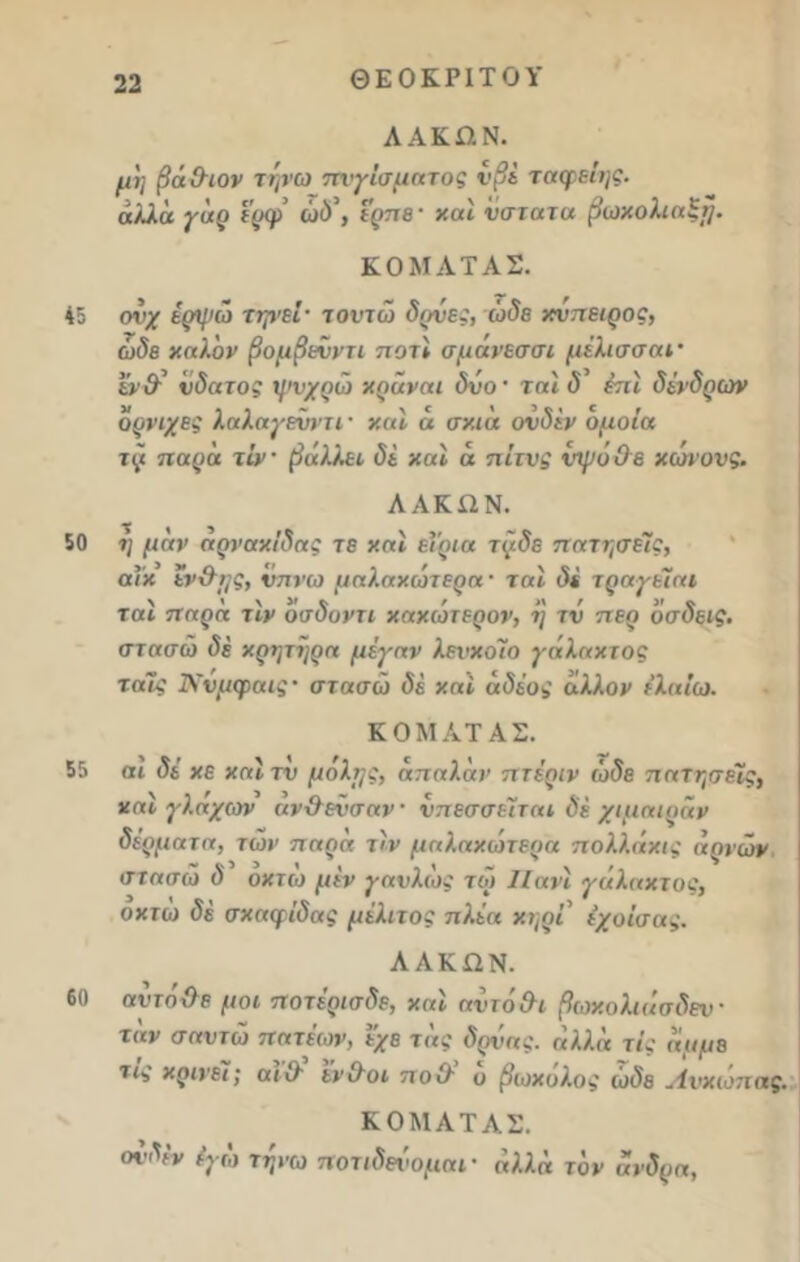 22 ΘΕΟΚΡΙΤΟΥ
ΛΑΚΩΝ.
μὴ βάθιον τήνω πυγίσματος ὑβὲ ταφείης.
ἀλλὰ γὰρ ἕρφ’ ὧδ’, ἕρπε· καὶ ὕστατα βωκολιαξῇ.
ΚΟΜΑΤΑΣ.
45 οὐχ ἑρψῶ τηνεί· τουτῶ δρύες, ὧδε κύπειρος,
ὧδε καλὸν βομβεῦντι ποτὶ σμάνεσσι μέλισσαι·
ἔνθ’ ὕδατος ψυχρῶ κρᾶναι δύο· ταὶ δ’ ἐπὶ δένδρων
ὄρνιχες λαλαγεῦντι· καὶ ἁ σκιὰ οὐδὲν ὁμοία
τᾷ παρὰ τίν· βάλλει δὲ καὶ ἁ πίτυς ὑψόθε κώνους.
ΛΑΚΩΝ.
50 ἦ μὰν ἀρνακίδας τε καὶ εἴρια τᾷδε πατησεῖς,
αἴκ’ ἔνθῃς, ὕπνω μαλακώτερα· ταὶ δὲ τραγεῖαι
ταὶ παρὰ τὶν ὄσδοντι κακώτερον, ἢ τύ περ ὄσδεις.
στασῶ δὲ κρητῆρα μέγαν λευκοῖο γάλακτος
ταῖς Νύμφαις· στασῶ δὲ καὶ ἁδέος ἄλλον ἐλαίω.
ΚΟΜΑΤΑΣ.
55 αἰ δέ κε καὶ τὺ μόλῃς, ἁπαλὰν πτέριν ὧδε πατησεῖς,
καὶ γλάχων’ ἀνθεῦσαν· ὑπεσσεῖται δὲ χιμαιρᾶν
δέρματα, τῶν παρὰ τὶν μαλακώτερα πολλάκις ἀρνῶν.
στασῶ δ’ ὀκτὼ μὲν γαυλὼς τῷ Πανὶ γάλακτος,
ὀκτὼ δὲ σκαφίδας μέλιτος πλέα κηρί’ ἐχοίσας.
ΛΑΚΩΝ.
60 αὐτόθε μοι ποτέρισδε, καὶ αὐτόθι βωκολιάσδευ·
τὰν σαυτῶ πατέων, ἔχε τὰς δρύας. ἀλλὰ τίς ἄμμε
τίς κρινεῖ; αἴθ’ ἔνθοι ποθ’ ὁ βωκόλος ὧδε Λυκώπας.
ΚΟΜΑΤΑΣ.
οὐδὲν ἐγὼ τήνω ποτιδεύομαι· ἀλλὰ τὸν ἄνδρα,